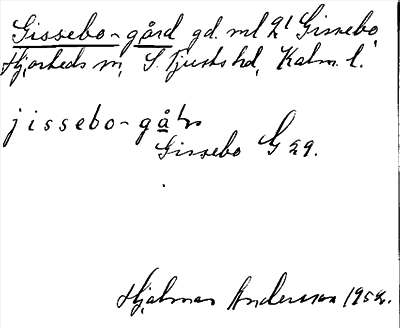 Gissebo-gård gd. ml 2¹ Gissebo,
Hjorteds sn, S. Tjusts hd, Kalm. l.
jissebo-gå
Gissebo G 29.
Hjalmar Andersson 1952.